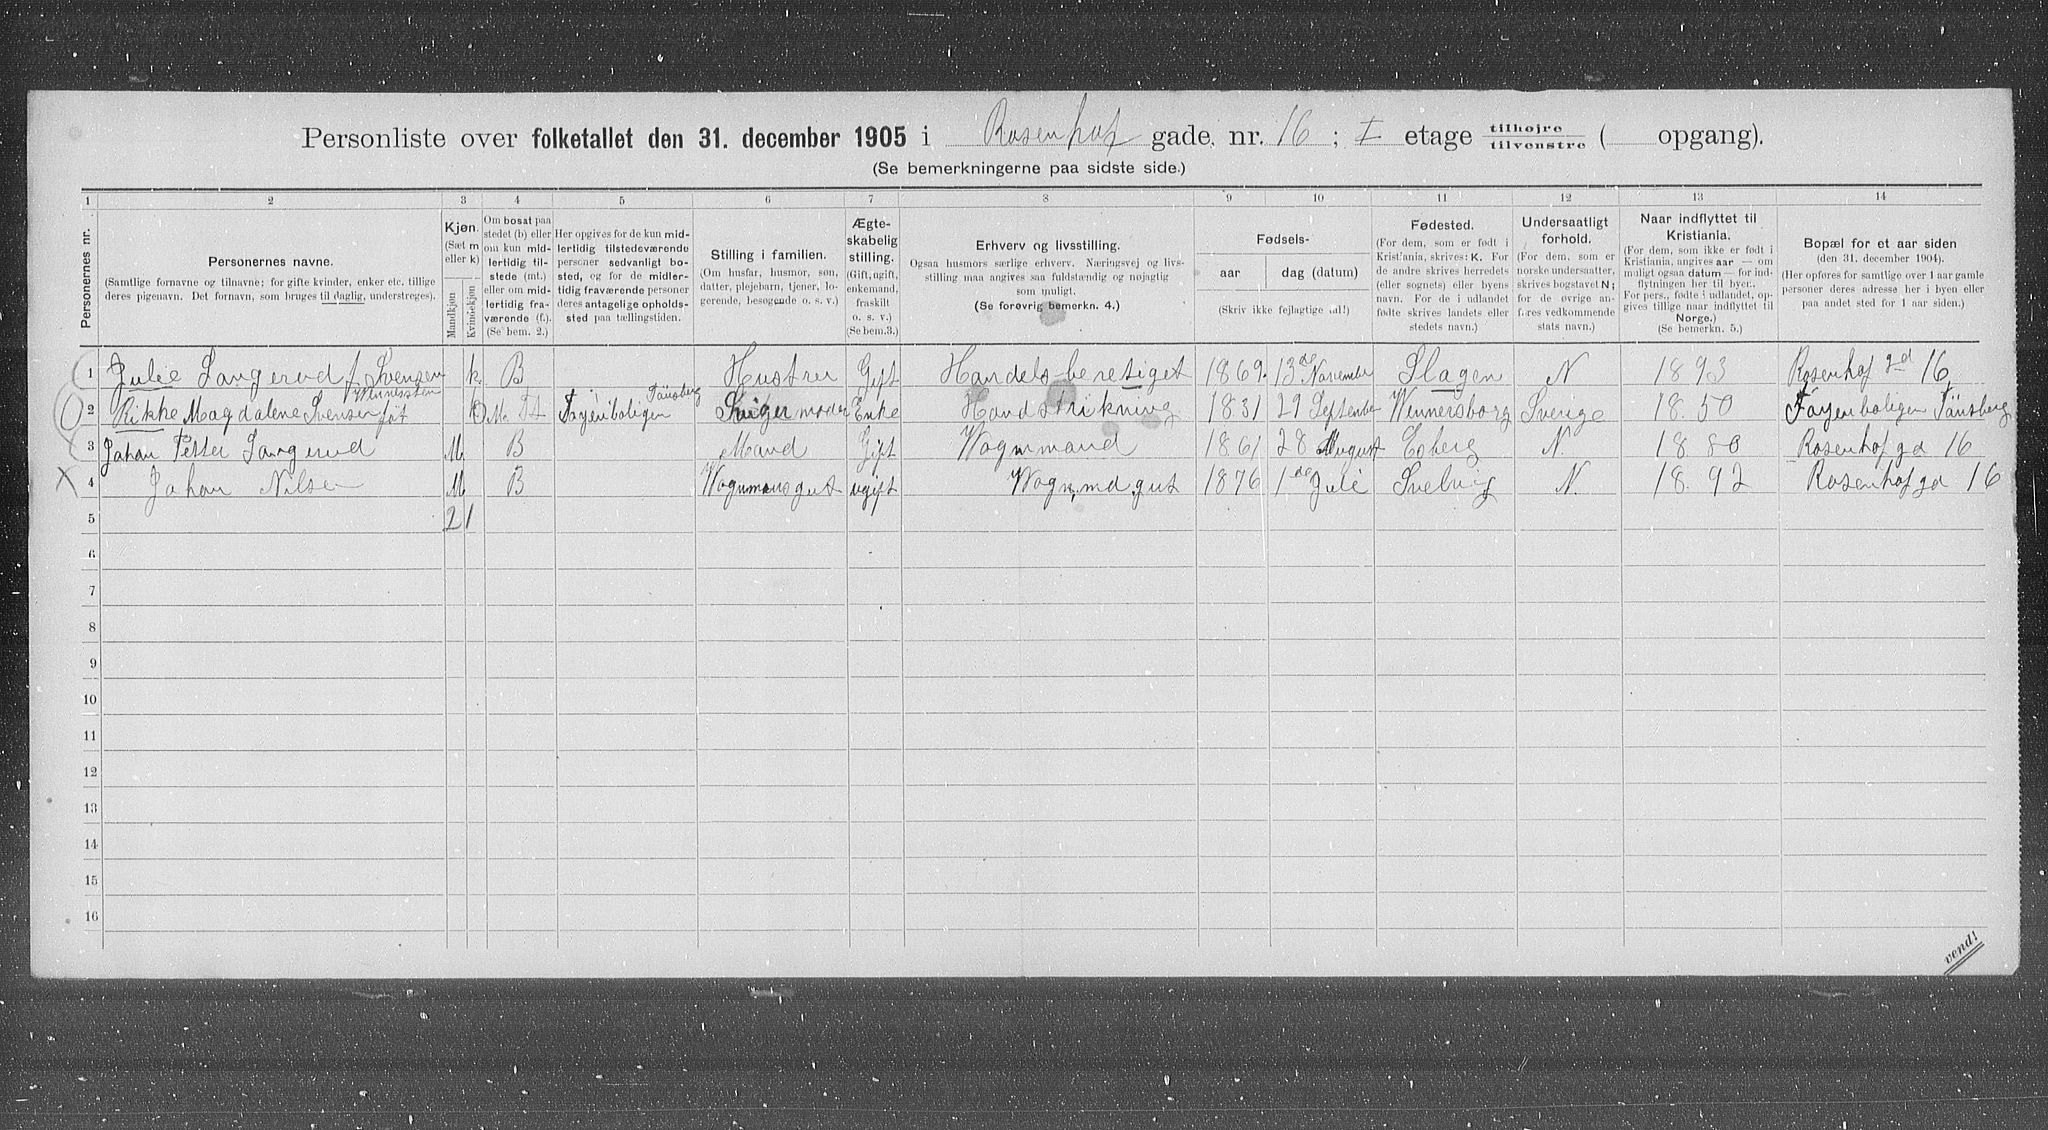 Personliste over folketallet den 31. december 1905 i Rosenhof gade, nr. 16 ; I etage tilhøjre tilvenstre ( opgang).
(Se bemerkningerne paa sidste side.)
1 2 3 4 5 6 7 8 9 10 11 12 13 14
Personernes nr.
Personernes navne.
(Samtlige fornavne og tilnavne; for gifte kvinder, enker etc. tillige
deres pigenavn. Det fornavn, som bruges til daglig, understreges).
Kjøn.
(Sæt m
eller k)
Mandkjøn
Kvindekjøn
Om bosat paa
stedet (b) eller
om kun mid-
lertidig til-
stede (mt.)
eller om mid-
lertidig fra-
værende (f.).
(Se bem. 2.)
Her opgives for de kun mid-
lertidig tilstedeværende
personer sedvanligt bo-
sted, og for de midler-
tidig fraværende personer
deres antagelige opholds-
sted paa tællingstiden.
Stilling i familien.
(Om husfar, husmor, søn,
datter, plejebarn, tjener, lo-
gerende, besøgende o. s. v.)
Ægte-
skabelig
stilling.
(Gift, ugift,
enkemand,
fraskilt
o. s. v.)
(Se bem.3.)
Erhverv og livsstilling.
Ogsaa husmors særlige erhverv. Næringsvej og livs-
stilling maa angives saa fuldstændig og nøjagtig
som muligt.
(Se forøvrig bemerkn. 4.)
Fødsels-
aar dag (datum)
(Skriv ikke fejlagtige tal!)
Fødested.
(For dem, som er født i
Kristiania, skrives: K. For
de andre skrives herredets
(eller sognets) eller byens
navn. For de i udlandet
fødte skrives landets eller
stedets navn.)
Undersaatligt
forhold.
(For dem, som er
norske undersaatter,
skrives bogstavet N;
for de øvrige an-
føres vedkommende
stats navn.)
Naar indflyttet til
Kristiania.
(For dem, som ikke er født i
Kristiania, angives aar — om
muligt ogsaa datum — for ind-
flytningen her til byen.
For pers., fødte i udlandet, op-
gives tillige naar indflyttet til
Norge.)
(Se bemerkn. 5.)
Bopæl for et aar siden
(den 31. december 1904).
(Her opføres for samtlige over 1 aar gamle
personer deres adresse her i byen eller
paa andet sted for 1 aar siden.)
1 Julie Langerud f Svensen k. B Hustru Gift Handelsberetiget 1869. 13de November Slagen N 1893 Rosenhof gd 16
Tønsberg
2 Rikke Magdalene Svensen føt k Mt Føyenboligen Sviger moder Enke Haandstrikning 1831 29 September Wennersborg Sverige 18.50 Føyenboligen Tønsberg
3 Johan Petter Langerud M B Mand Gift Wognmand 1861 28 August Esberg N. 1880 Rosenhof gd 16
4 Johan Nilsen M B Wognmansgut ugift Wognmd.gut 1876 1de Juli Svelvig N. 18.92 Rosenhof gd 16
5 2 1
6
7
8
9
10
11
12
13
14
15
16
vend!